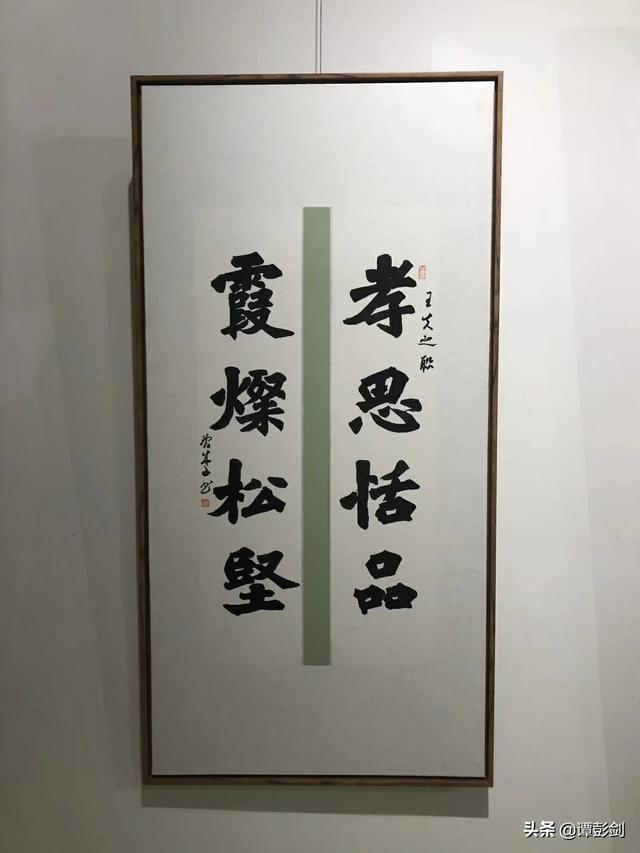 孝思恬品
霞燦松堅
王
之聯
書
头条 @谭彭剑